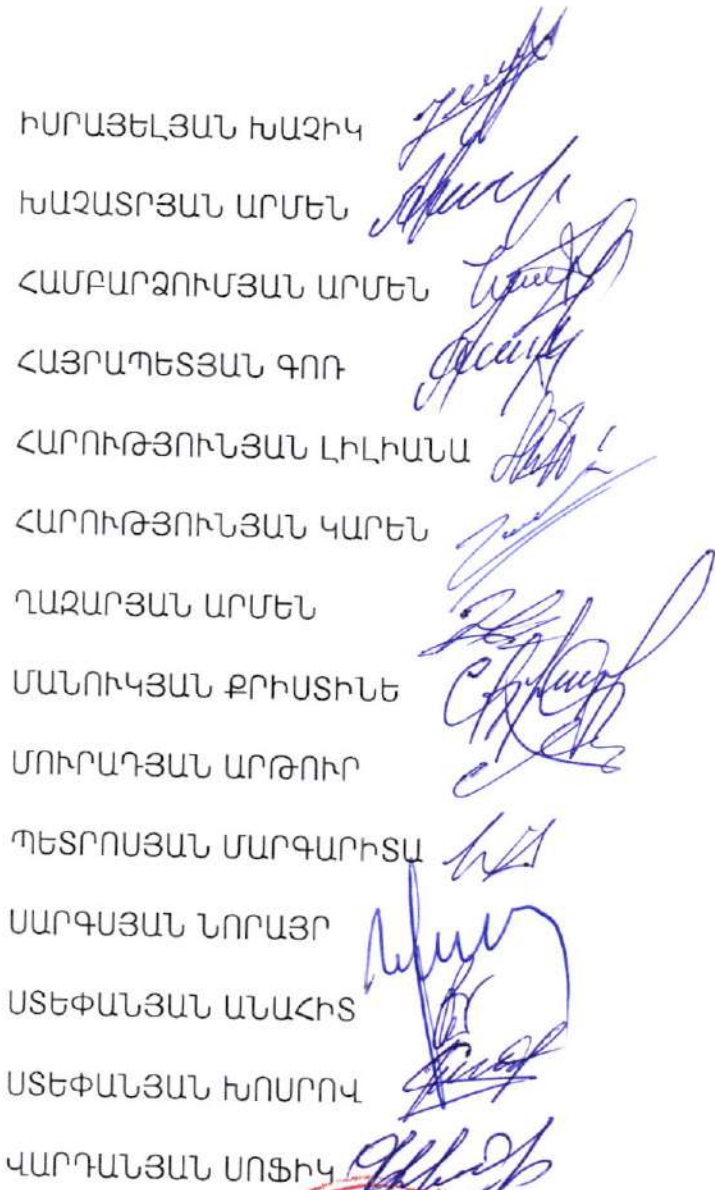 ԻՍՐԱՅԵԼՅԱՆ ԽԱՉԻԿ
ԽԱՉԱՏՐՅԱՆ ԱՐՄԵՆ
ՀԱՄԲԱՐՁՈՒՄՅԱՆ ԱՐՄԵՆ
ՀԱՅՐԱՊԵՏՅԱՆ ԳՈՌ
ՀԱՐՈՒԹՅՈՒՆՅԱՆ ԼԻԼԻԱՆԱ
ՀԱՐՈՒԹՅՈՒՆՅԱՆ ԿԱՐԵՆ
ՂԱԶԱՐՅԱՆ ԱՐՄԵՆ
ՄԱՆՈՒԿՅԱՆ ՔՐԻՍՏԻՆԵ
ՄՈՒՐԱԴՅԱՆ ԱՐԹՈՒՐ
ՊԵՏՐՈՍՅԱՆ ՄԱՐԳԱՐԻՏԱ
ՍԱՐԳՍՅԱՆ ՆՈՐԱՅՐ
ՍՏԵՓԱՆՅԱՆ ԱՆԱՀԻՏ
ՍՏԵՓԱՆՅԱՆ ԽՈՍՐՈՎ
ՎԱՐԴԱՆՅԱՆ ՍՈՖԻԿ